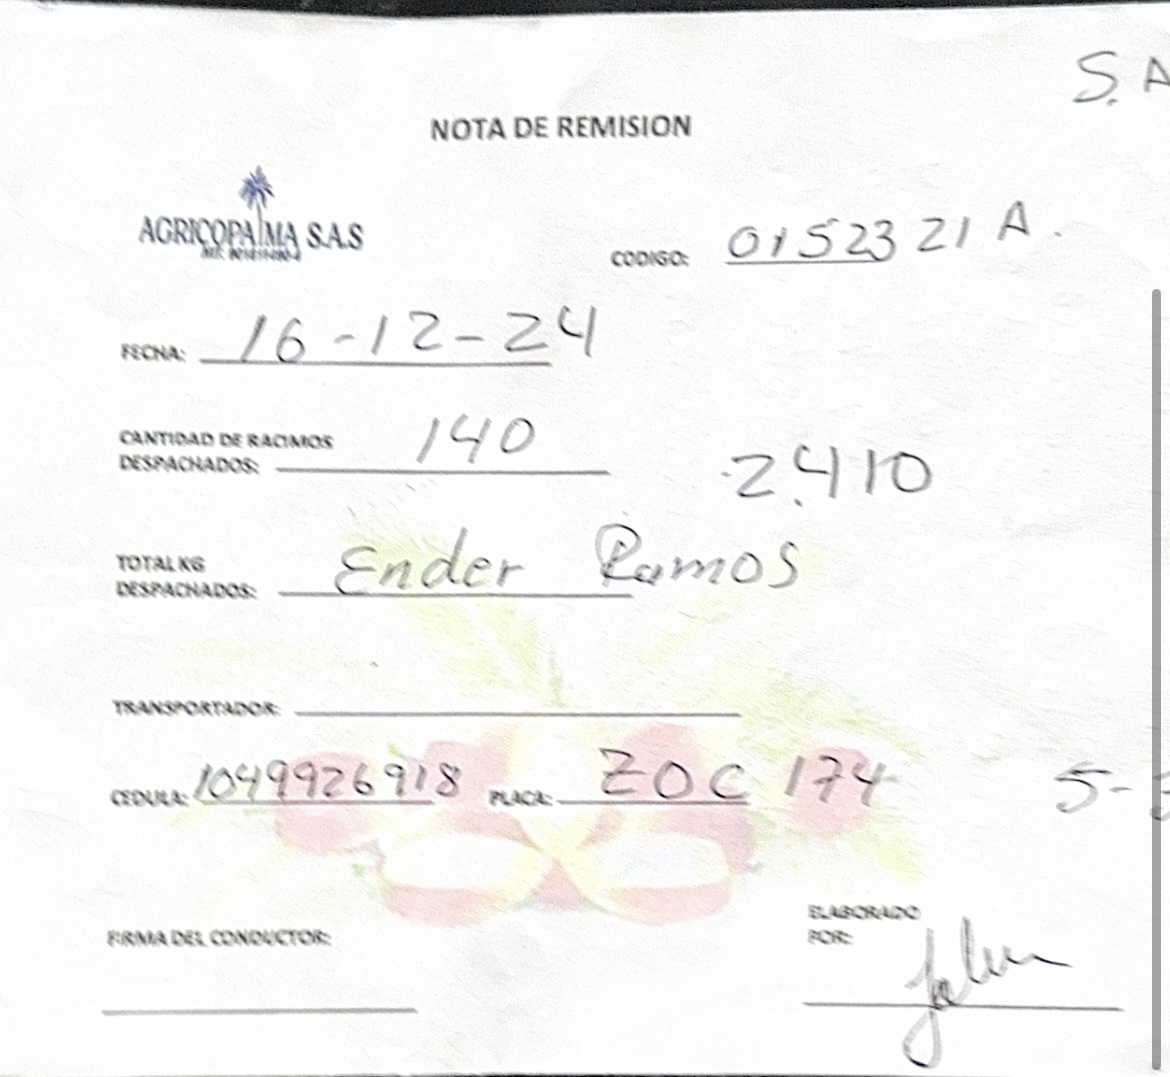 S. A
NOTA DE REMISION
AGRICOPALMA S.A.S
CODIGO: 0152321 A.
FECHA: 16-12-24
CANTIDAD DE RACIMOS
DESPACHADOS: 140
2.410
TOTAL KG
DESPACHADOS: Ender Ramos
TRANSPORTADOR:
CEDULA: 1049926918 PLACA: ZOC 174
5-
ELABORADO
POR:
FIRMA DEL CONDUCTOR: